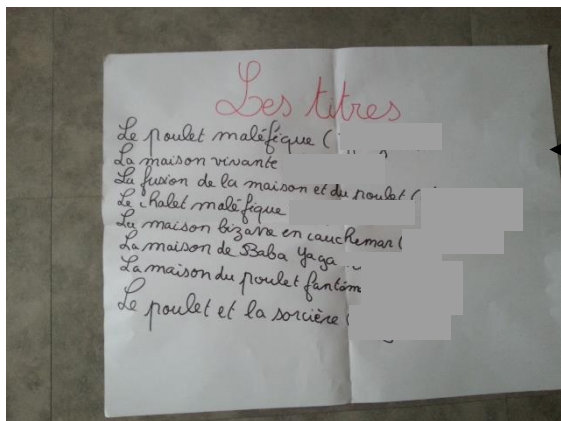 Les titres
Le poulet maléfique (
La maison vivante
La fusion de la maison et du poulet (
Le chalet maléfique
La maison bizarre en cauchemar (
La maison de Baba Yaga
La maison du poulet fantôm
Le poulet et la sorcière (